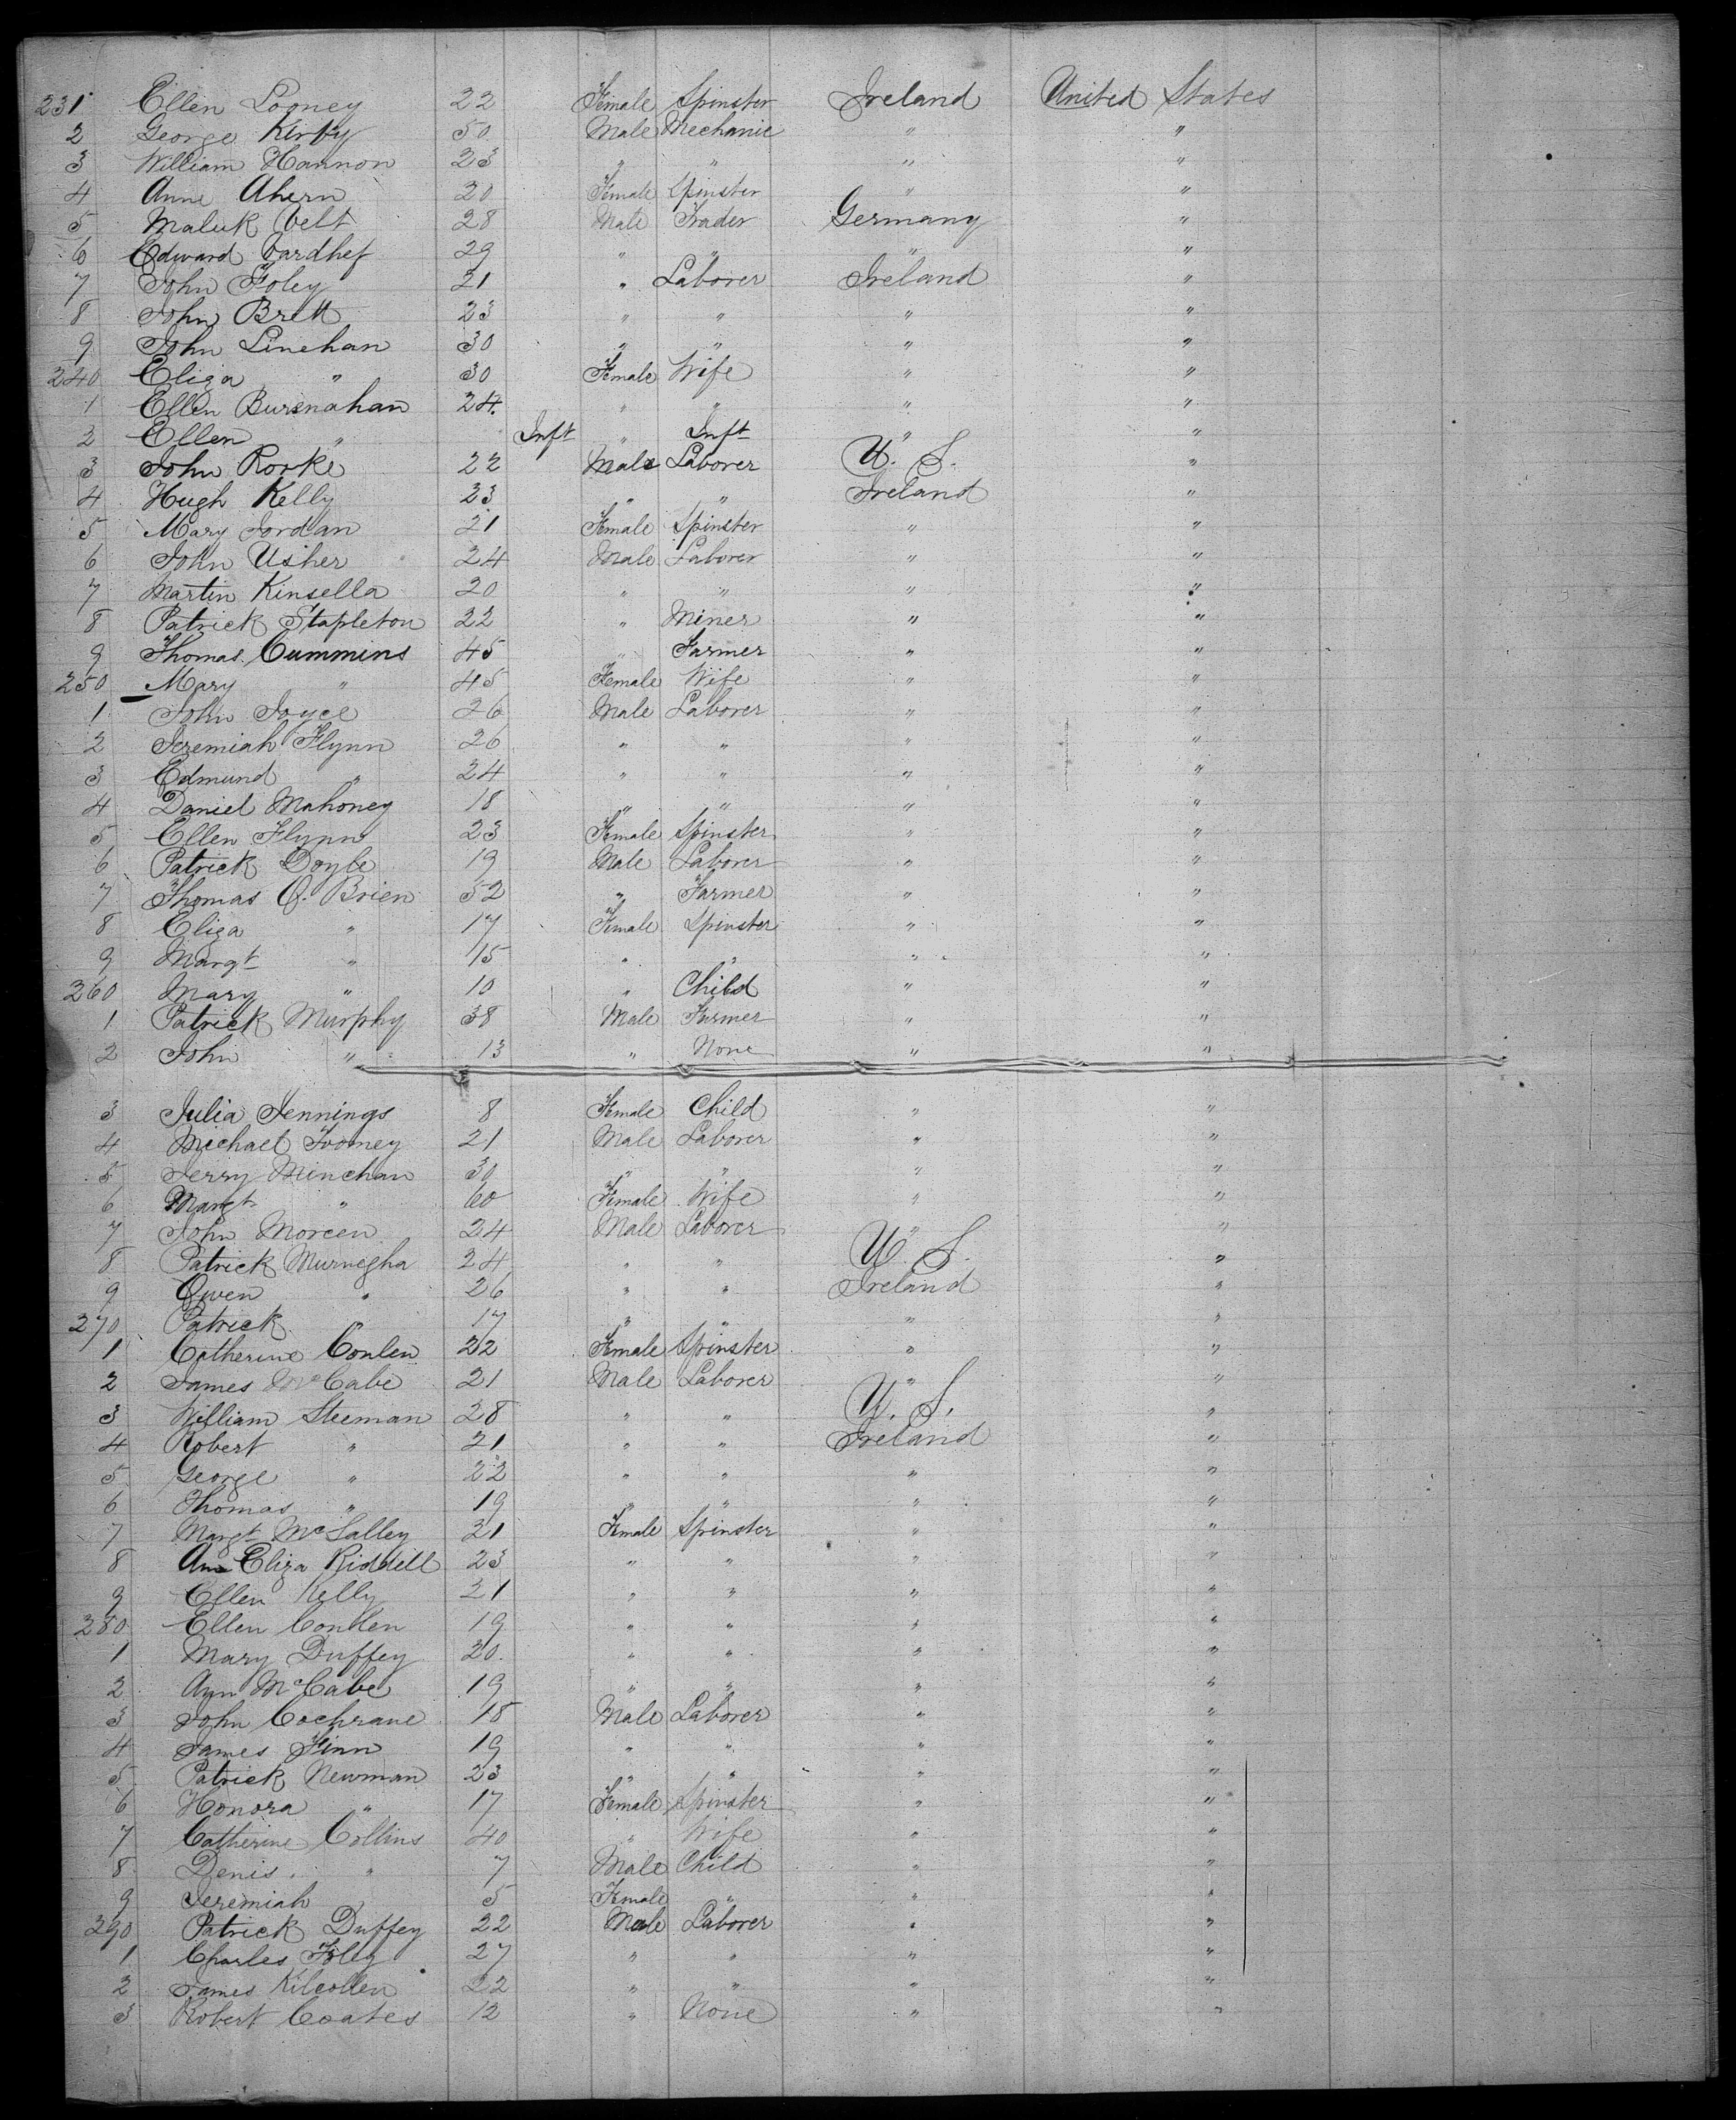 231 Ellen Looney 22 Female Spinster Ireland United States
2 George Kirby 50 Male Mechanic " "
3 William Hannon 23 " " " "
4 Anne Ahern 20 Female Spinster " "
5 Maluk Velt 28 Male Trader Germany "
6 Edward 29 " " " "
7 John Foley 21 " Laborer Ireland "
8 John Brett 23 " " " "
9 John Linehan 30 " " " "
240 Eliza " 30 Female Wife " "
1 Ellen Bursnahan 24 " " " "
2 Ellen " Inft " Inft " "
3 John Rorke 22 Male Laborer U. S. "
4 Hugh Kelly 23 " " Ireland "
5 Mary Jordan 21 Female Spinster " "
6 John Usher 24 Male Laborer " "
7 Martin Kinsella 20 " " " "
8 Patrick Stapleton 22 " Miner " "
9 Thomas Cummins 45 " Farmer " "
250 Mary " 45 Female Wife " "
1 John Joyce 26 Male Laborer " "
2 Jeremiah Flynn 26 " " " "
3 Edmund " 24 " " " "
4 Daniel Mahoney 18 " " " "
5 Ellen Flynn 23 Female Spinster " "
6 Patrick Doyle 19 Male Laborer " "
7 Thomas O. Brien 52 " Farmer " "
8 Eliza " 17 Female Spinster " "
9 Margt " 15 " " " "
260 Mary " 10 " Child " "
1 Patrick Murphy 38 Male Farmer " "
2 John " 13 " None " "
3 Julia Jennings 8 Female Child " "
4 Michael Toomey 21 Male Laborer " "
5 Jerry Minehan 30 " " " "
6 Margt " 60 Female Wife " "
7 John Moreen 24 Male Laborer " "
8 Patrick Murnegha 24 " " U. S. "
9 Owen " 26 " " Ireland "
270 Patrick " 17 " " " "
1 Catherine Conlen 22 Female Spinster " "
2 James McCabe 21 Male Laborer " "
3 William Steeman 28 " " U. S. "
4 Robert " 21 " " Ireland "
5 George " 22 " " " "
6 Thomas " 19 " " " "
7 Margt McSalley 21 Female Spinster " "
8 Ann Eliza Riddell 23 " " " "
9 Ellen Kelly 21 " " " "
280 Ellen Conlen 19 " " " "
1 Mary Duffey 20 " " " "
2 Ann McCabe 19 " " " "
3 John Cochrane 18 Male Laborer " "
4 James Finn 19 " " " "
5 Patrick Newman 23 " " " "
6 Honora " 17 Female Spinster " "
7 Catherine Collins 40 " Wife " "
8 Denis " 7 Male Child " "
9 Jeremiah " 5 Female " " "
290 Patrick Duffey 22 Male Laborer " "
1 Charles Foley 27 " " " "
2 James Kilcollen 22 " " " "
3 Robert Coates 12 " None " "